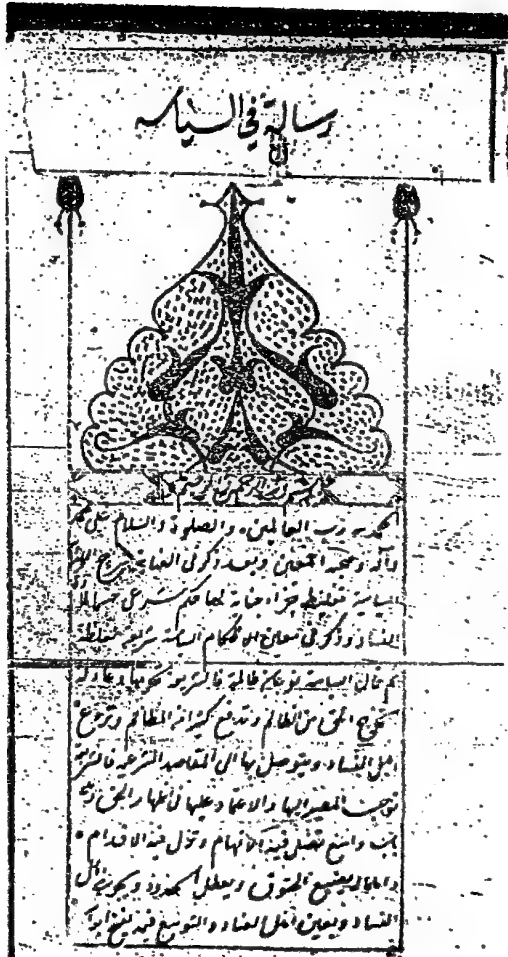 رسالة في السياسه
بسم الله الرحمن الرحيم
الحمد لله رب العالمين والصلوة والسلام على محمد
وآله وصحبه اجمعين وبعد ذكر في العناية شرح الهداية
السياسة تغليظ جزاء جناية لها حكم شرعي حسما لمادة
الفساد وذكر في معين الاحكام السياسة شريعة مغلظة
ثم قال السياسة نوعان ظالمة فالشريعة تحرمها وعادلة
تخرج الحق من الظالم وتدفع كثيرا من المظالم وتردع
اهل الفساد ويتوصل بها الى المقاصد الشرعية فالشريعة
توجب المصير اليها والاعتماد عليها في اظهار الحق وهي
باب واسع تضل فيه الافهام وتزل فيه الاقدام
واهماله يضيع الحقوق ويعطل الحدود ويجرئ اهل
الفساد ويعين اهل العناد والتوسع فيه يفتح ابواب